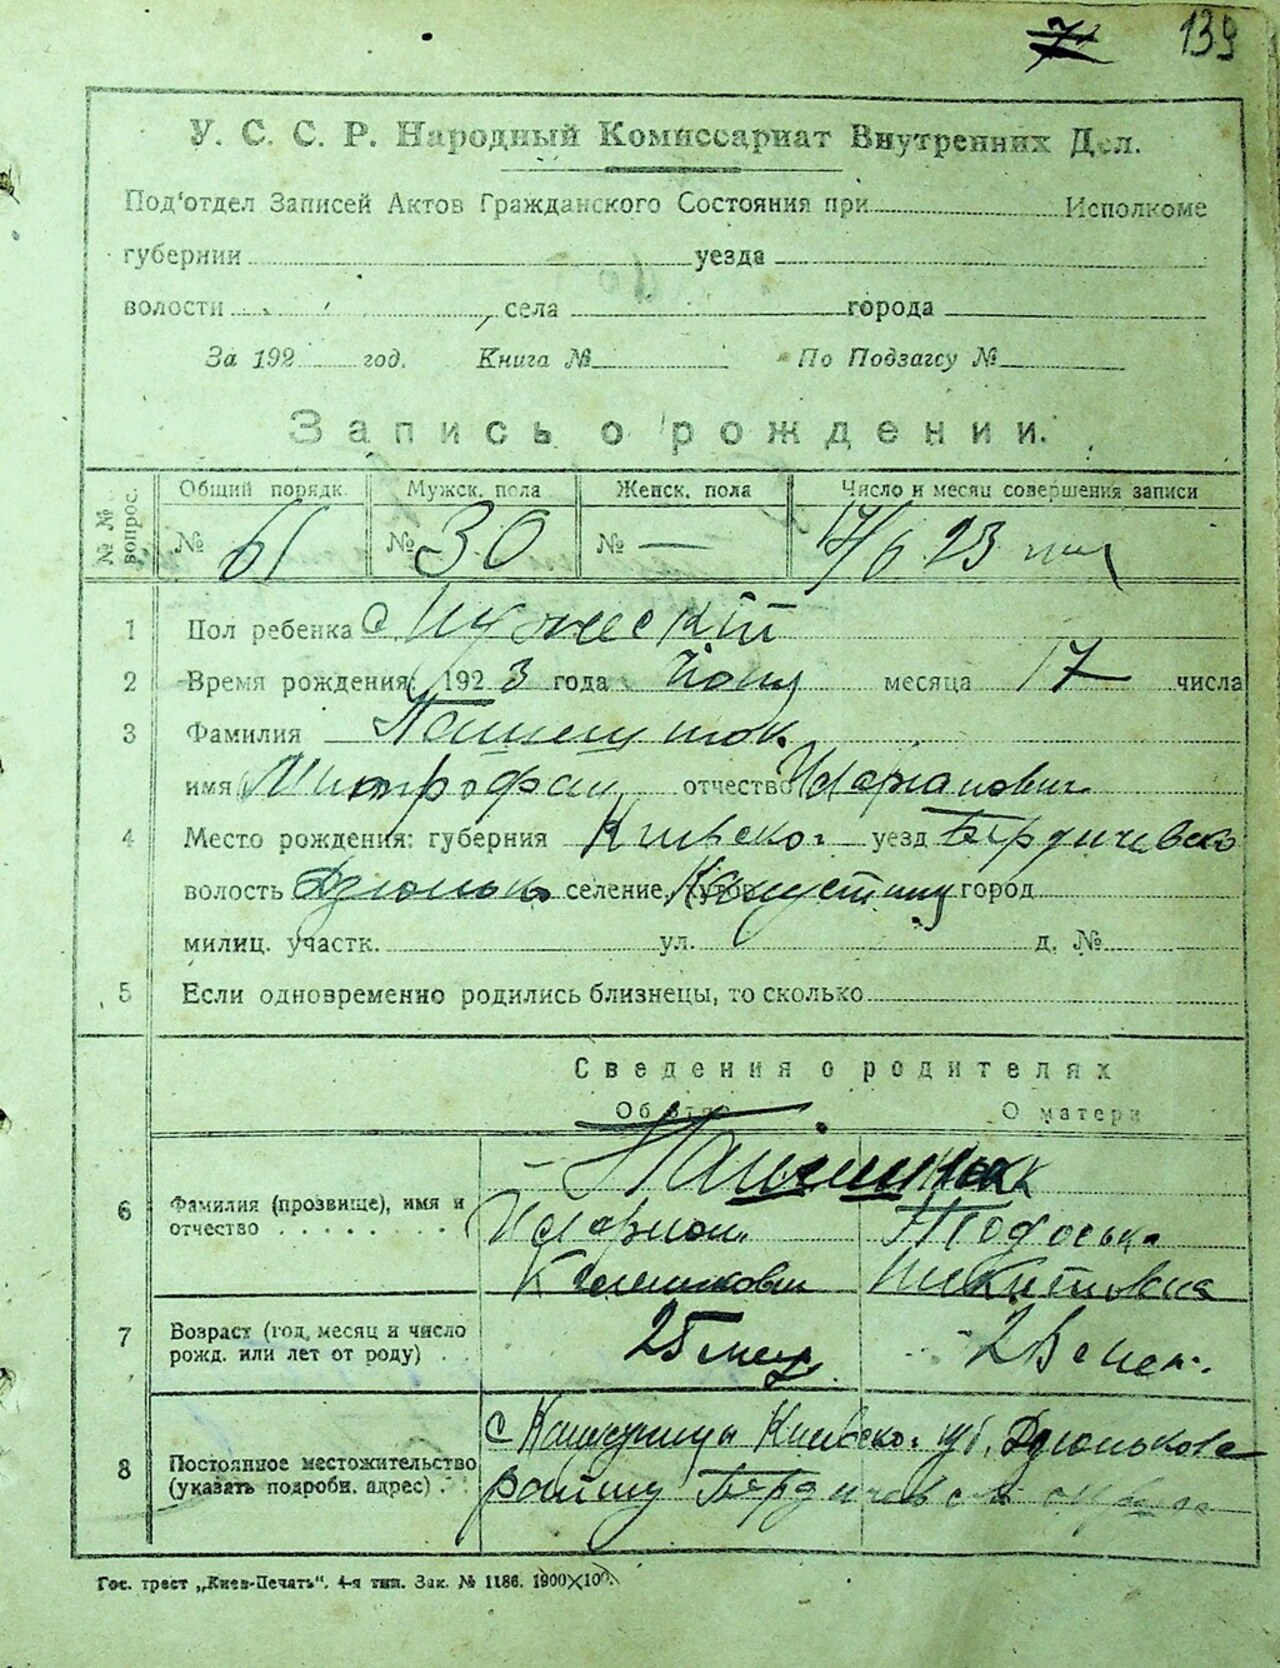 7 139
У. С. С. Р. Народный Комиссариат Внутренних Дел.
Под'отдел Записей Актов Гражданского Состояния при Исполкоме
губернии уезда
волости села города
За 192 год. Книга № По Подзагсу №
Запись о рождении.
№ № вопрос. Общий порядк. Мужск. пола Женск. пола Число и месяц совершения записи
№ 61 № 30 № — 17/6 23
1 Пол ребенка Мужеский
2 Время рождения: 1923 года месяца 17 числа
3 Фамилия
имя Митрофан отчество Иларионович
4 Место рождения: губерния Киевско. уезд Бердичевско
волость Дзюньк селение, хутор город
милиц. участк. ул. д. №
5 Если одновременно родились близнецы, то сколько
Сведения о родителях
Об отце О матери
6 Фамилия (прозвище), имя и отчество
Иларион Тодоська
Никитовна
7 Возраст (год, месяц и число рожд. или лет от роду) 25
8 Постоянное местожительство (указать подробн. адрес)
с Киевско. губ. Дзюньково
району Бердичевско
Гос. трест „Киев-Печать“. 4-я тип. Зак. № 1186. 1900×100.